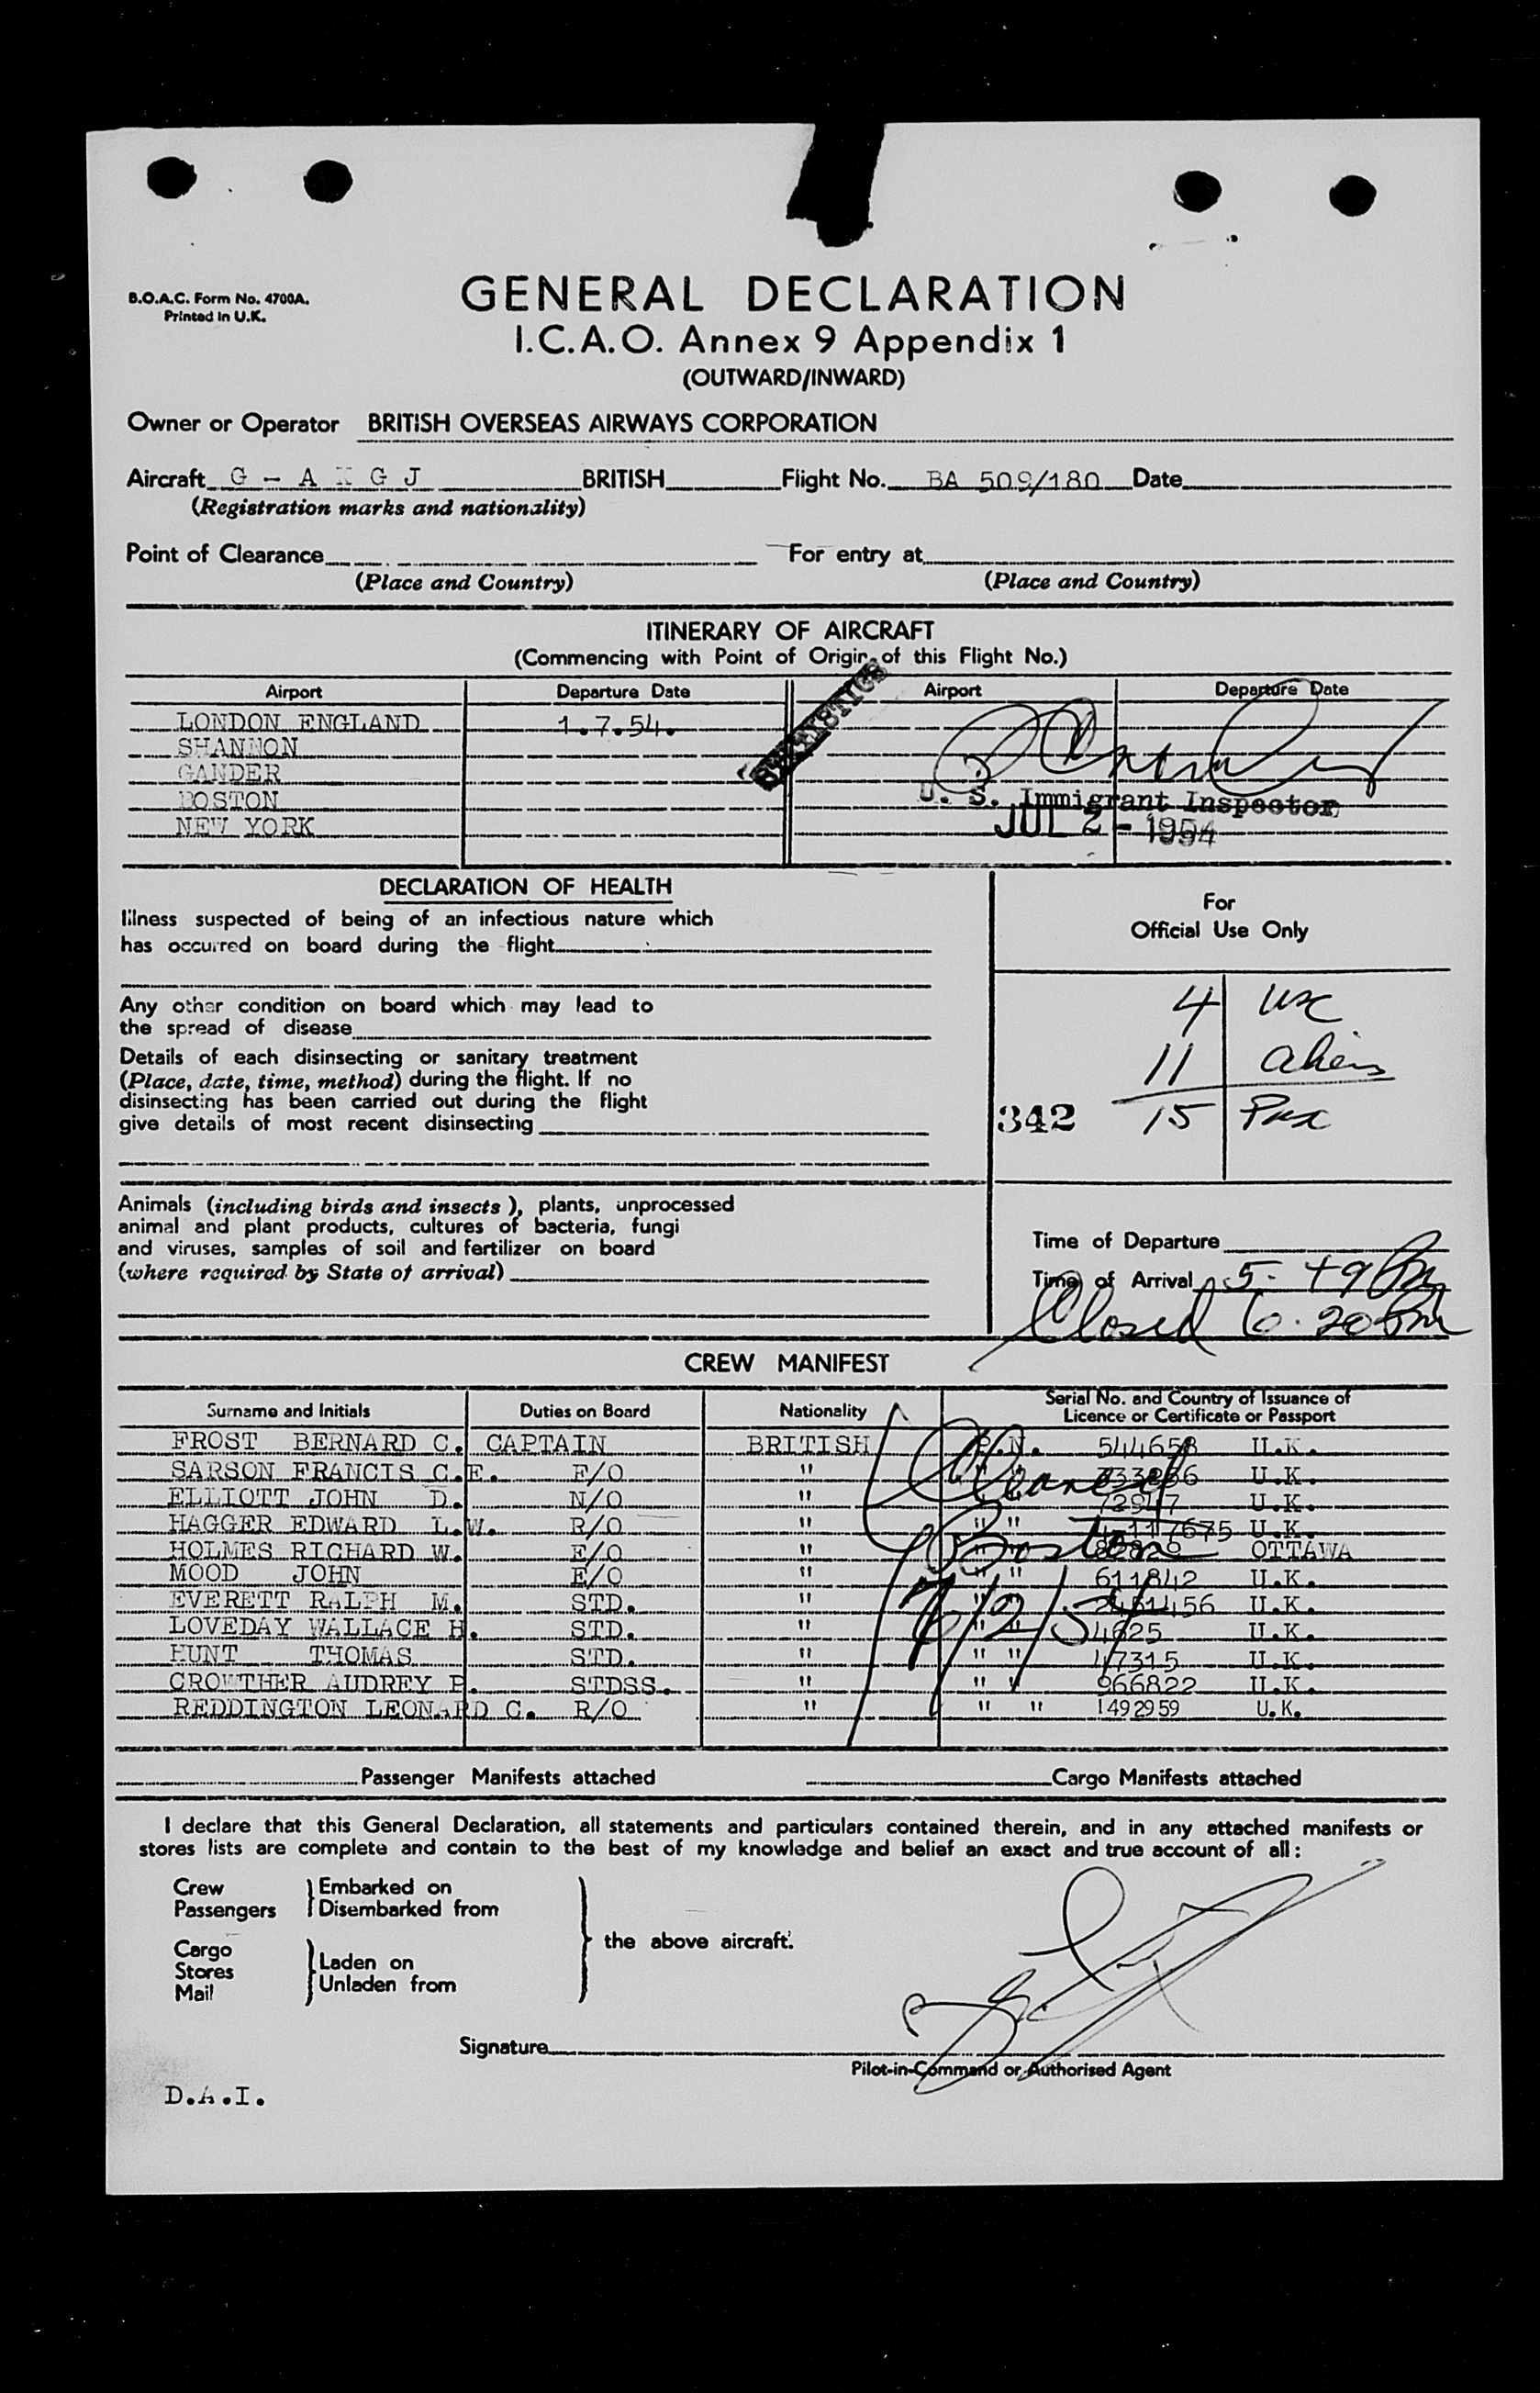 B.O.A.C. Form No. 4700A.
Printed in U.K.
GENERAL DECLARATION
I.C.A.O. Annex 9 Appendix 1
(OUTWARD/INWARD)
Owner or Operator BRITISH OVERSEAS AIRWAYS CORPORATION
Aircraft G - A K G J BRITISH Flight No. BA 509/180 Date
(Registration marks and nationality)
Point of Clearance For entry at
(Place and Country) (Place and Country)
ITINERARY OF AIRCRAFT
(Commencing with Point of Origin of this Flight No.)
Airport Departure Date Airport Departure Date
STATISTICS
LONDON ENGLAND 1.7.54.
SHANNON
GANDER
BOSTON U. S. Immigrant Inspector
NEW YORK JUL 2 - 1954
DECLARATION OF HEALTH
Illness suspected of being of an infectious nature which
has occurred on board during the flight
Any other condition on board which may lead to
the spread of disease
Details of each disinsecting or sanitary treatment
(Place, date, time, method) during the flight. If no
disinsecting has been carried out during the flight
give details of most recent disinsecting
For
Official Use Only
4 USC
11 aliens
342 15 Pax
Animals (including birds and insects ), plants, unprocessed
animal and plant products, cultures of bacteria, fungi
and viruses, samples of soil and fertilizer on board
(where required by State of arrival)
Time of Departure
Time of Arrival 5. 49 Pm
Closed 6. 20 Pm
CREW MANIFEST
Surname and Initials Duties on Board Nationality Serial No. and Country of Issuance of
Licence or Certificate or Passport
FROST BERNARD C. CAPTAIN BRITISH P.N. 544658 U.K.
SARSON FRANCIS C.E. F/O " " " U.K.
ELLIOTT JOHN D. N/O " " " U.K.
HAGGER EDWARD L.W. R/O " " " U.K.
HOLMES RICHARD W. E/O " " " OTTAWA
MOOD JOHN E/O " " " 611842 U.K.
EVERETT RALPH M. STD. " " " U.K.
LOVEDAY WALLACE H. STD. " " " U.K.
HUNT THOMAS STD. " " " 47315 U.K.
CROWTHER AUDREY P. STDSS. " " " 966822 U.K.
REDDINGTON LEONARD C. R/O " " " 1492959 U.K.
Cleared
Boston
7/2/54
Passenger Manifests attached Cargo Manifests attached
I declare that this General Declaration, all statements and particulars contained therein, and in any attached manifests or
stores lists are complete and contain to the best of my knowledge and belief an exact and true account of all:
Crew Embarked on
Passengers Disembarked from
the above aircraft.
Cargo
Stores Laden on
Mail Unladen from
Signature
Pilot-in-Command or Authorised Agent
D.A.I.